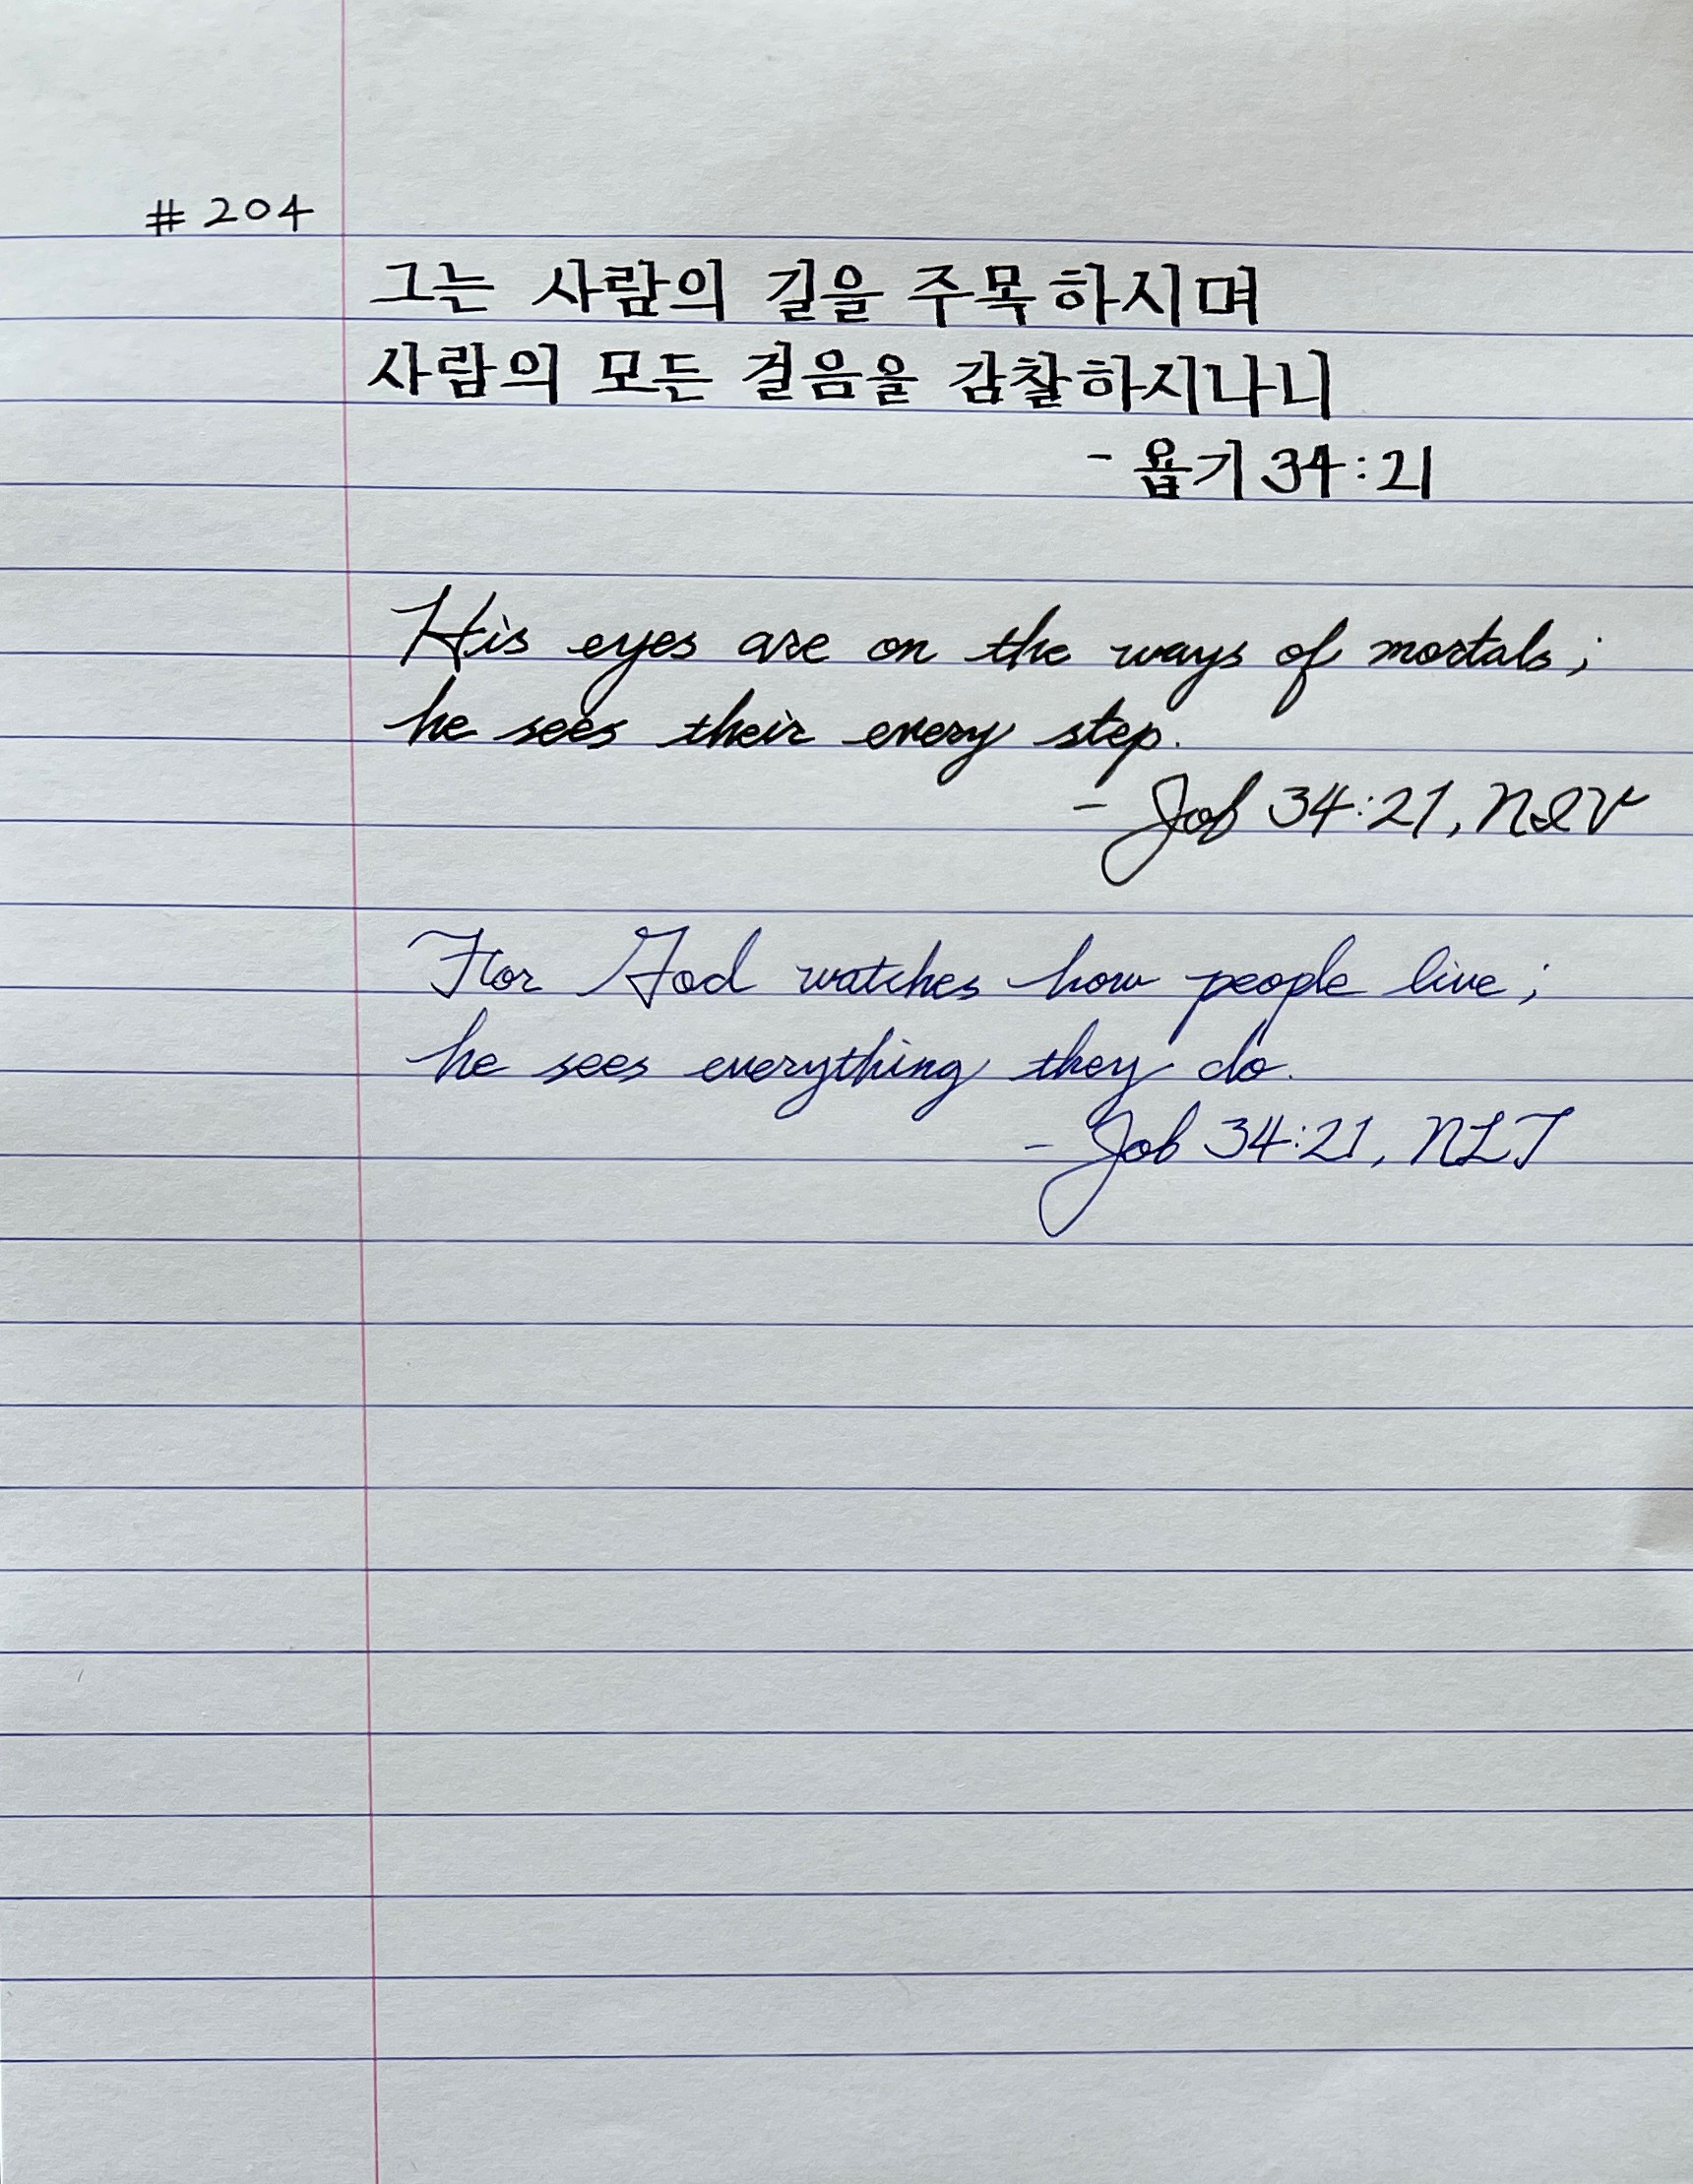 # 204
그는 사람의 길을 주목하시며
사람의 모든 걸음을 감찰하시나니
- 욥기 34:21
His eyes are on the ways of mortals;
he sees their every step.
- Job 34:21, NIV
For God watches how people live;
he sees everything they do.
- Job 34:21, NLT